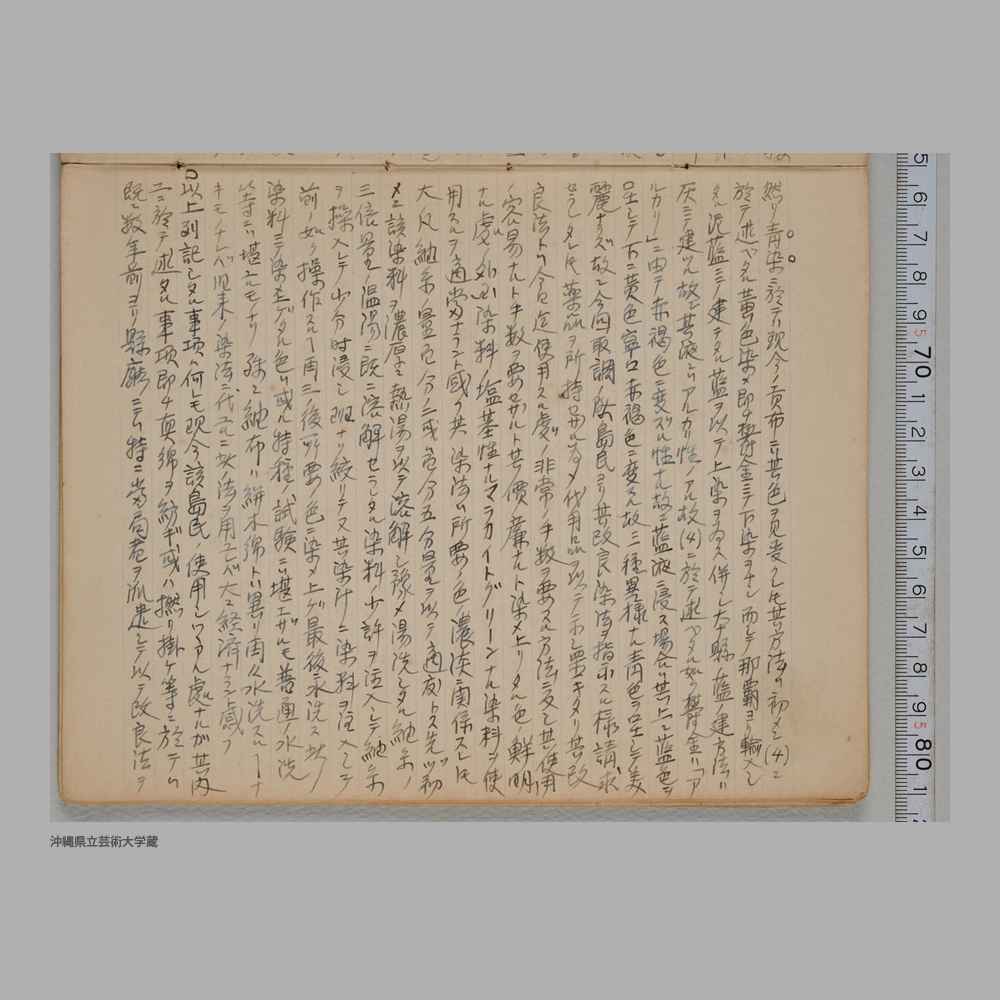 然リ青染ニ於テハ現今ノ貢布ニハ其色ヲ見受ケシモ其方法ハ初メニ(4)ニ
於テ述ベタル黄色染メ即チ欝金ニテ下染ヲナシ而シテ那覇ヨリ輸入シ
タル泥藍ニテ建テタル藍ヲ以テ上染ヲ為ス併シ大本縣ノ藍ノ建方法ハ
灰ニテ建ツル故ニ其液ニハアルカリ性ノアル故(4)ニ於テ述ベタル如ク欝金ハ「ア
ルカリ」ニ由テ赤褐色ニ変ズル性ナル故ニ藍液ニ浸ス場合ハ其上ニ藍色ヲ
呈シテ下ニ黄色寧ロ赤褐色ニ変スル故ニ一種異様ナル青色ヲ呈シテ美
麗ナラズ故ニ今回取調ノ際島民ヨリ其改良染法ヲ指示スル様請求
セラレタルモ薬品ヲ所持 代用品ヲ以テ示シ置キタリ其改
良法トハ今日迄使用スル処ノ非常ノ手数ヲ要スル方法ニ反シ其使用
ノ容易ナルト手数ヲ要セザルト其価ノ廉ナルト染メ上リタル色ノ鮮明
ナル処ノ 染料ノ塩基性ナルマラカイトグリーンナル染料ヲ使
用スルヲ適当ナラント 其染法ハ所要ノ色ノ濃淡ニ関係スレモ
大凡紬糸ノ量百分ノ二或ハ百分五分量ヲ以テ適度トス先ヅ初
メニ該染料ヲ濃厚ニ熱湯ヲ以テ溶解シ豫メ湯洗シタル紬糸ノ
三倍量ノ温湯ニ既ニ溶解セラレタル染料ノ少許ヲ注入シテ紬糸
ヲ操入レテ少分時浸シ 絞リテ又其染汁ニ染料ヲ注入シテ
前ノ如ク操作スル事再三後所要ノ色ニ染メ上ゲ最後ニ水洗ス此ノ
染料ニテ染上ゲタル色ハ或ル特種ノ試験ニハ堪エザルモ普通ノ水洗
等ニハ堪ユルモノナリ殊ニ紬布ハ絣木綿トハ異リ再々水洗スルヿナ
キモノナレバ旧来ノ染法ニ代ユルニ此法ヲ用ユレバ大ニ経済ナラント感ズ
以上列記シタル事項ハ何レモ現今該島民ノ使用シツヽアル処ナルガ其内
ニニ於テ述タル事項即チ真綿ヲ紡ギ或ハ撚リ掛ケ等ニ於テハ
既ニ数年前ヨリ縣廳ニテハ特ニ當局者ヲ派遣シテ以テ改良法ヲ
5 6 7 8 9 70 1 2 3 4 5 6 7 8 9 80 1
沖縄県立芸術大学蔵